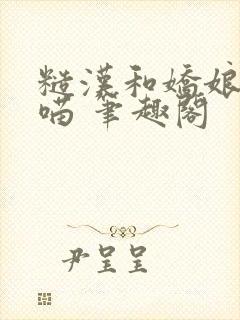 糙漢和嬌娘
喵 筆趣閣
尹呈呈